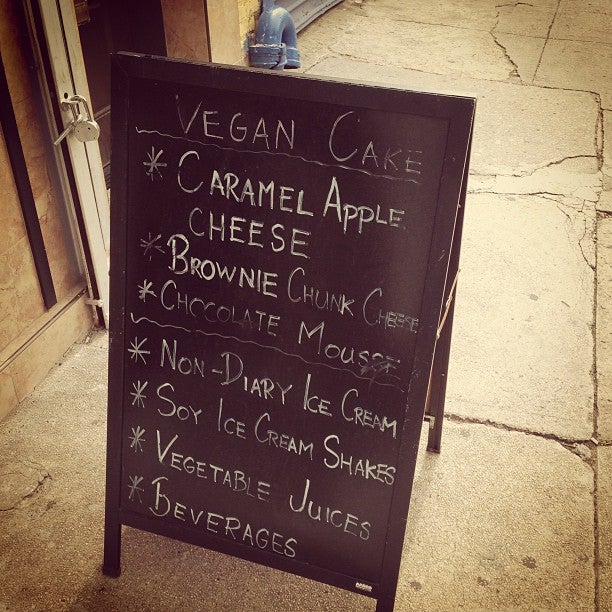 VEGAN CAKE
* CARAMEL APPLE
CHEESE
* BROWNIE CHUNK CHEESE
* CHOCOLATE MOUSSE
* NON-DIARY ICE CREAM
* SOY ICE CREAM SHAKES
* VEGETABLE JUICES
* BEVERAGES